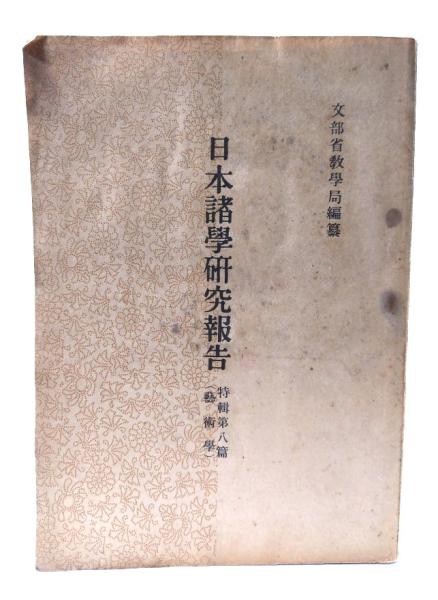 文部省敎學局編纂
日本諸學硏究報告
特輯第八篇
(藝術學)